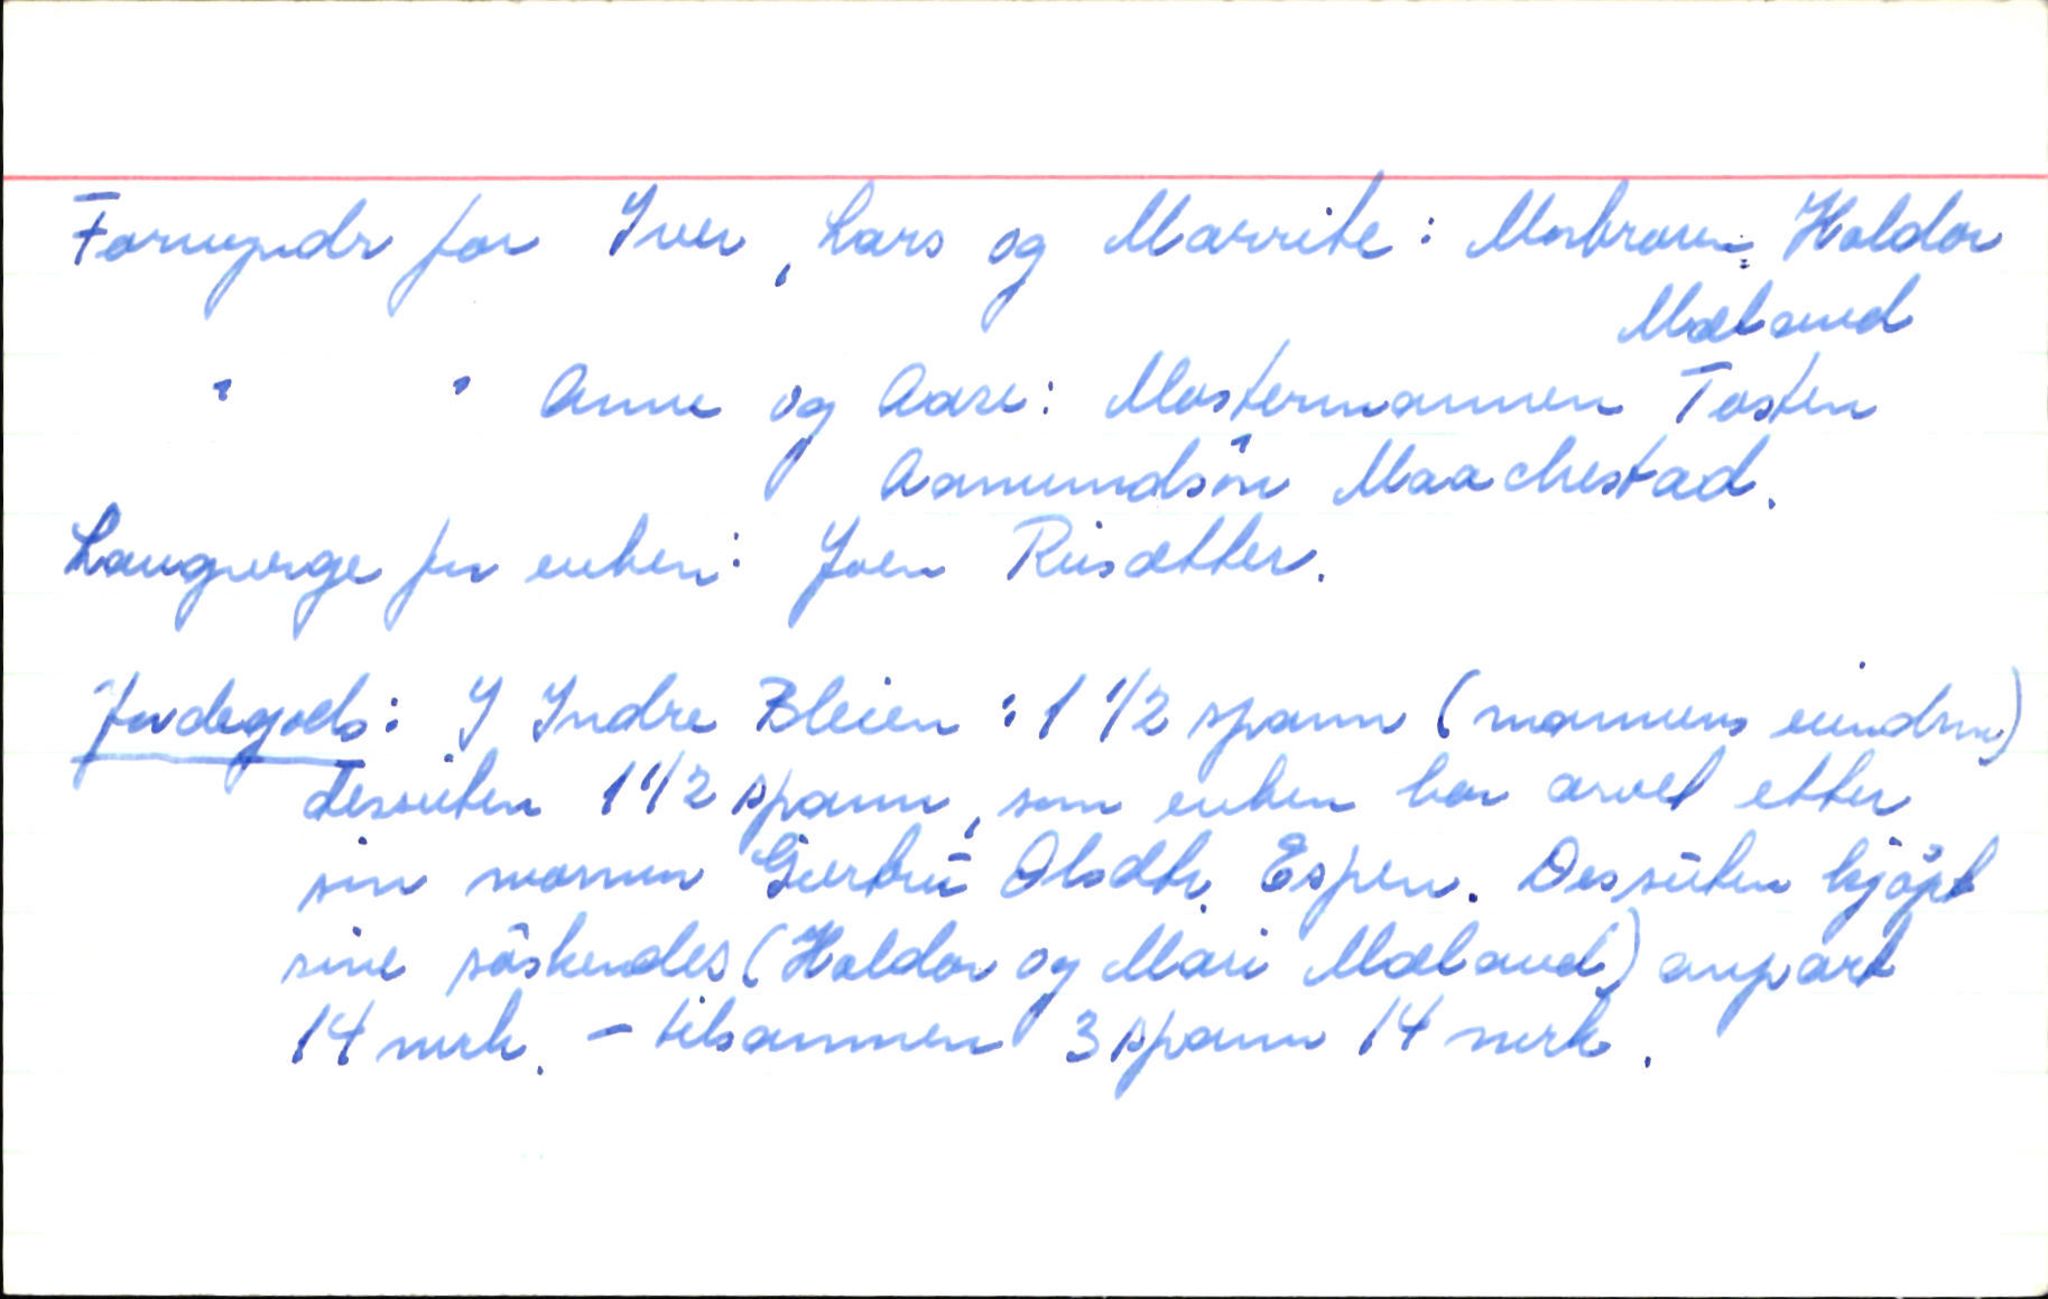 Formyndr for Iver, Lars og Marrite: Morbroren Haldor
Mæland
" " Anne og Aase: Mostermannen Tosten
Aamundsön Maachestad.
Laugverge for enken: Joen Riisætter.
Jordegods: I Indre Bleien: 1 1/2 spann (mannens eiendom)
dessuten 1 1/2 spann, som enken har arvet etter
sin mormor Giertru Olsdtr. Espen. Dessuten kjöpt
sine söskendes (Haldor og Mari Mæland) anpart
14 merk. - tilsammen 3 spann 14 merk.